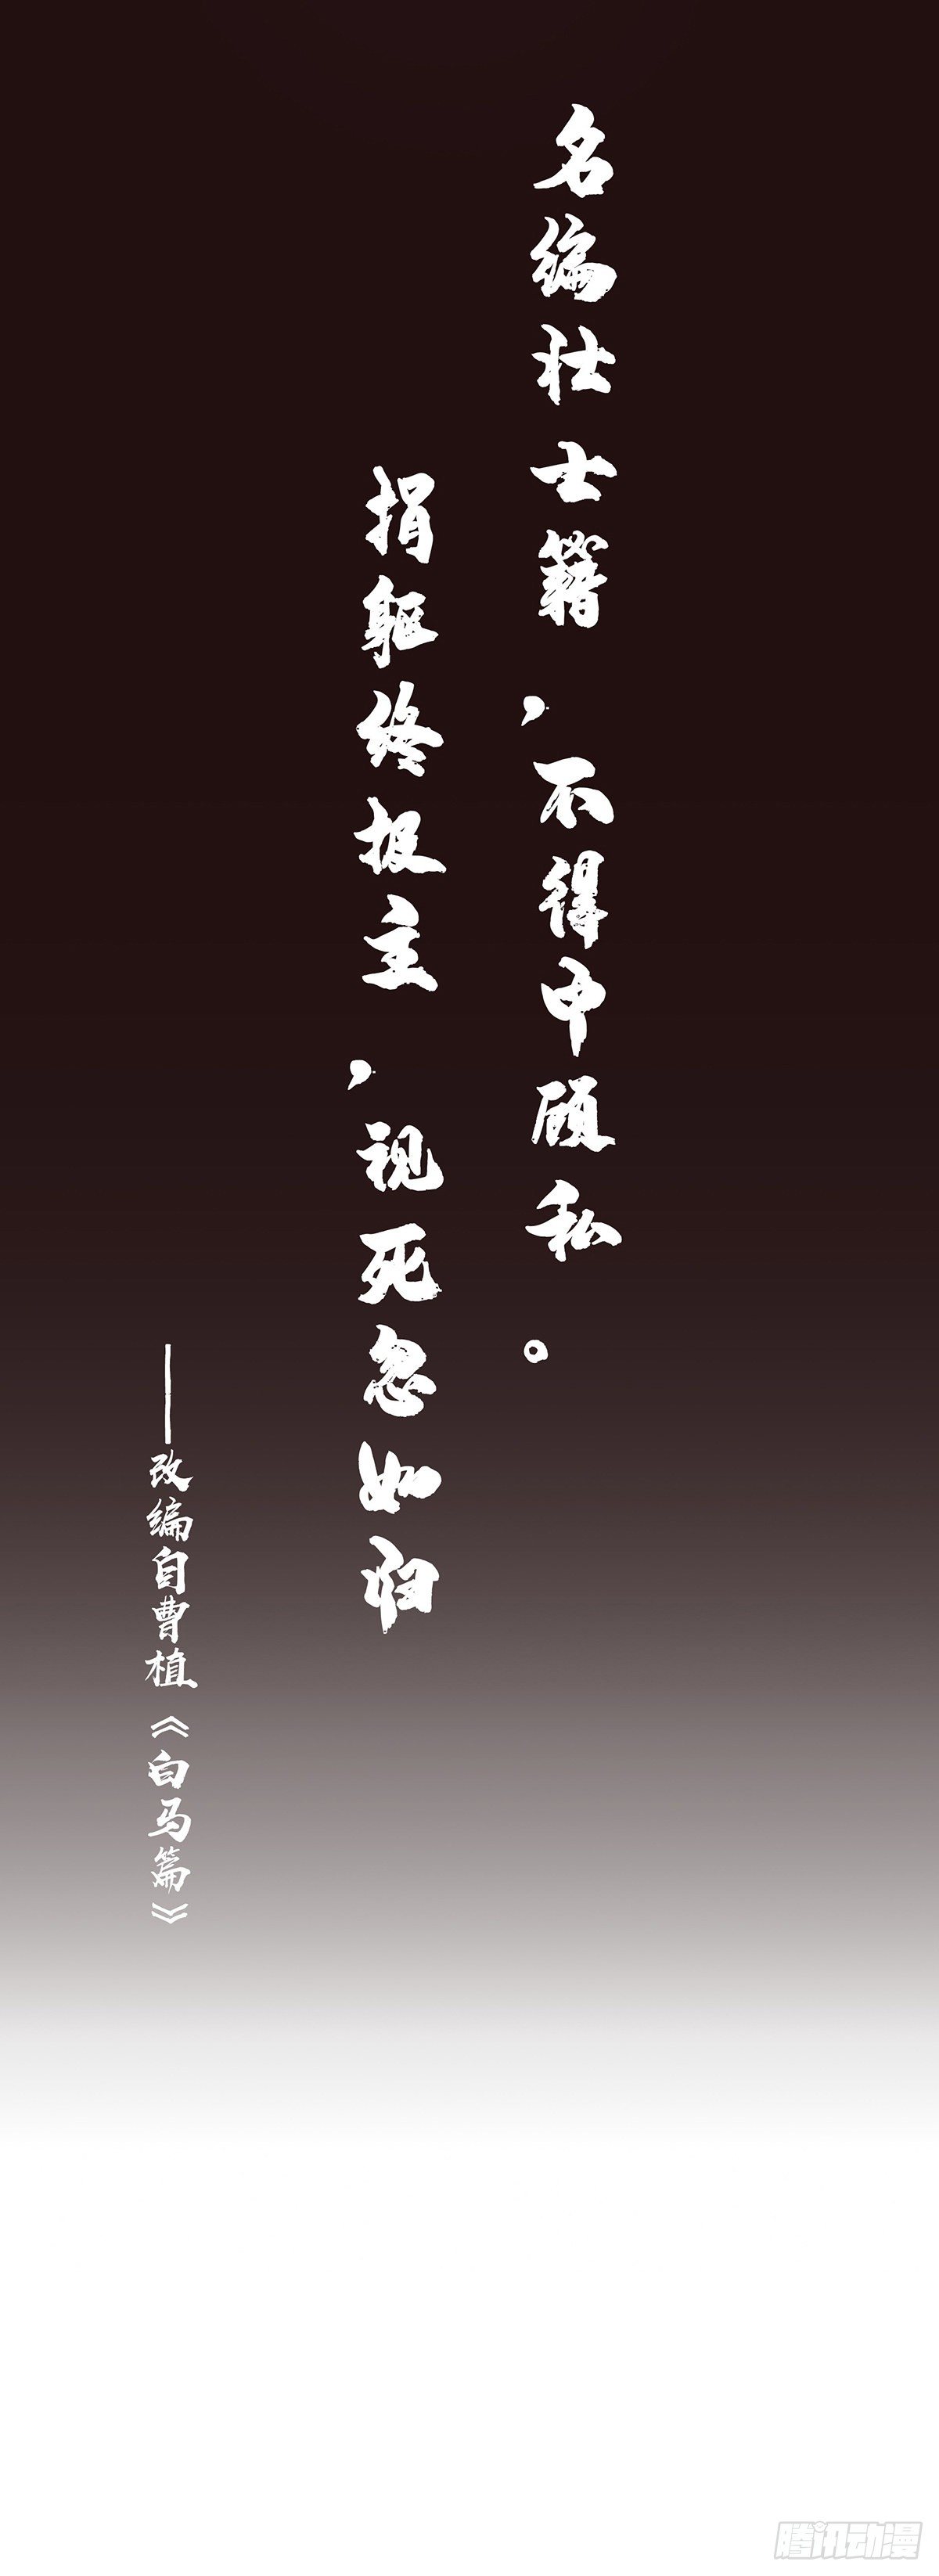 名编壮士籍，不得中顾私。
捐躯终报主，视死忽如归
——改编自曹植《白马篇》
腾讯动漫